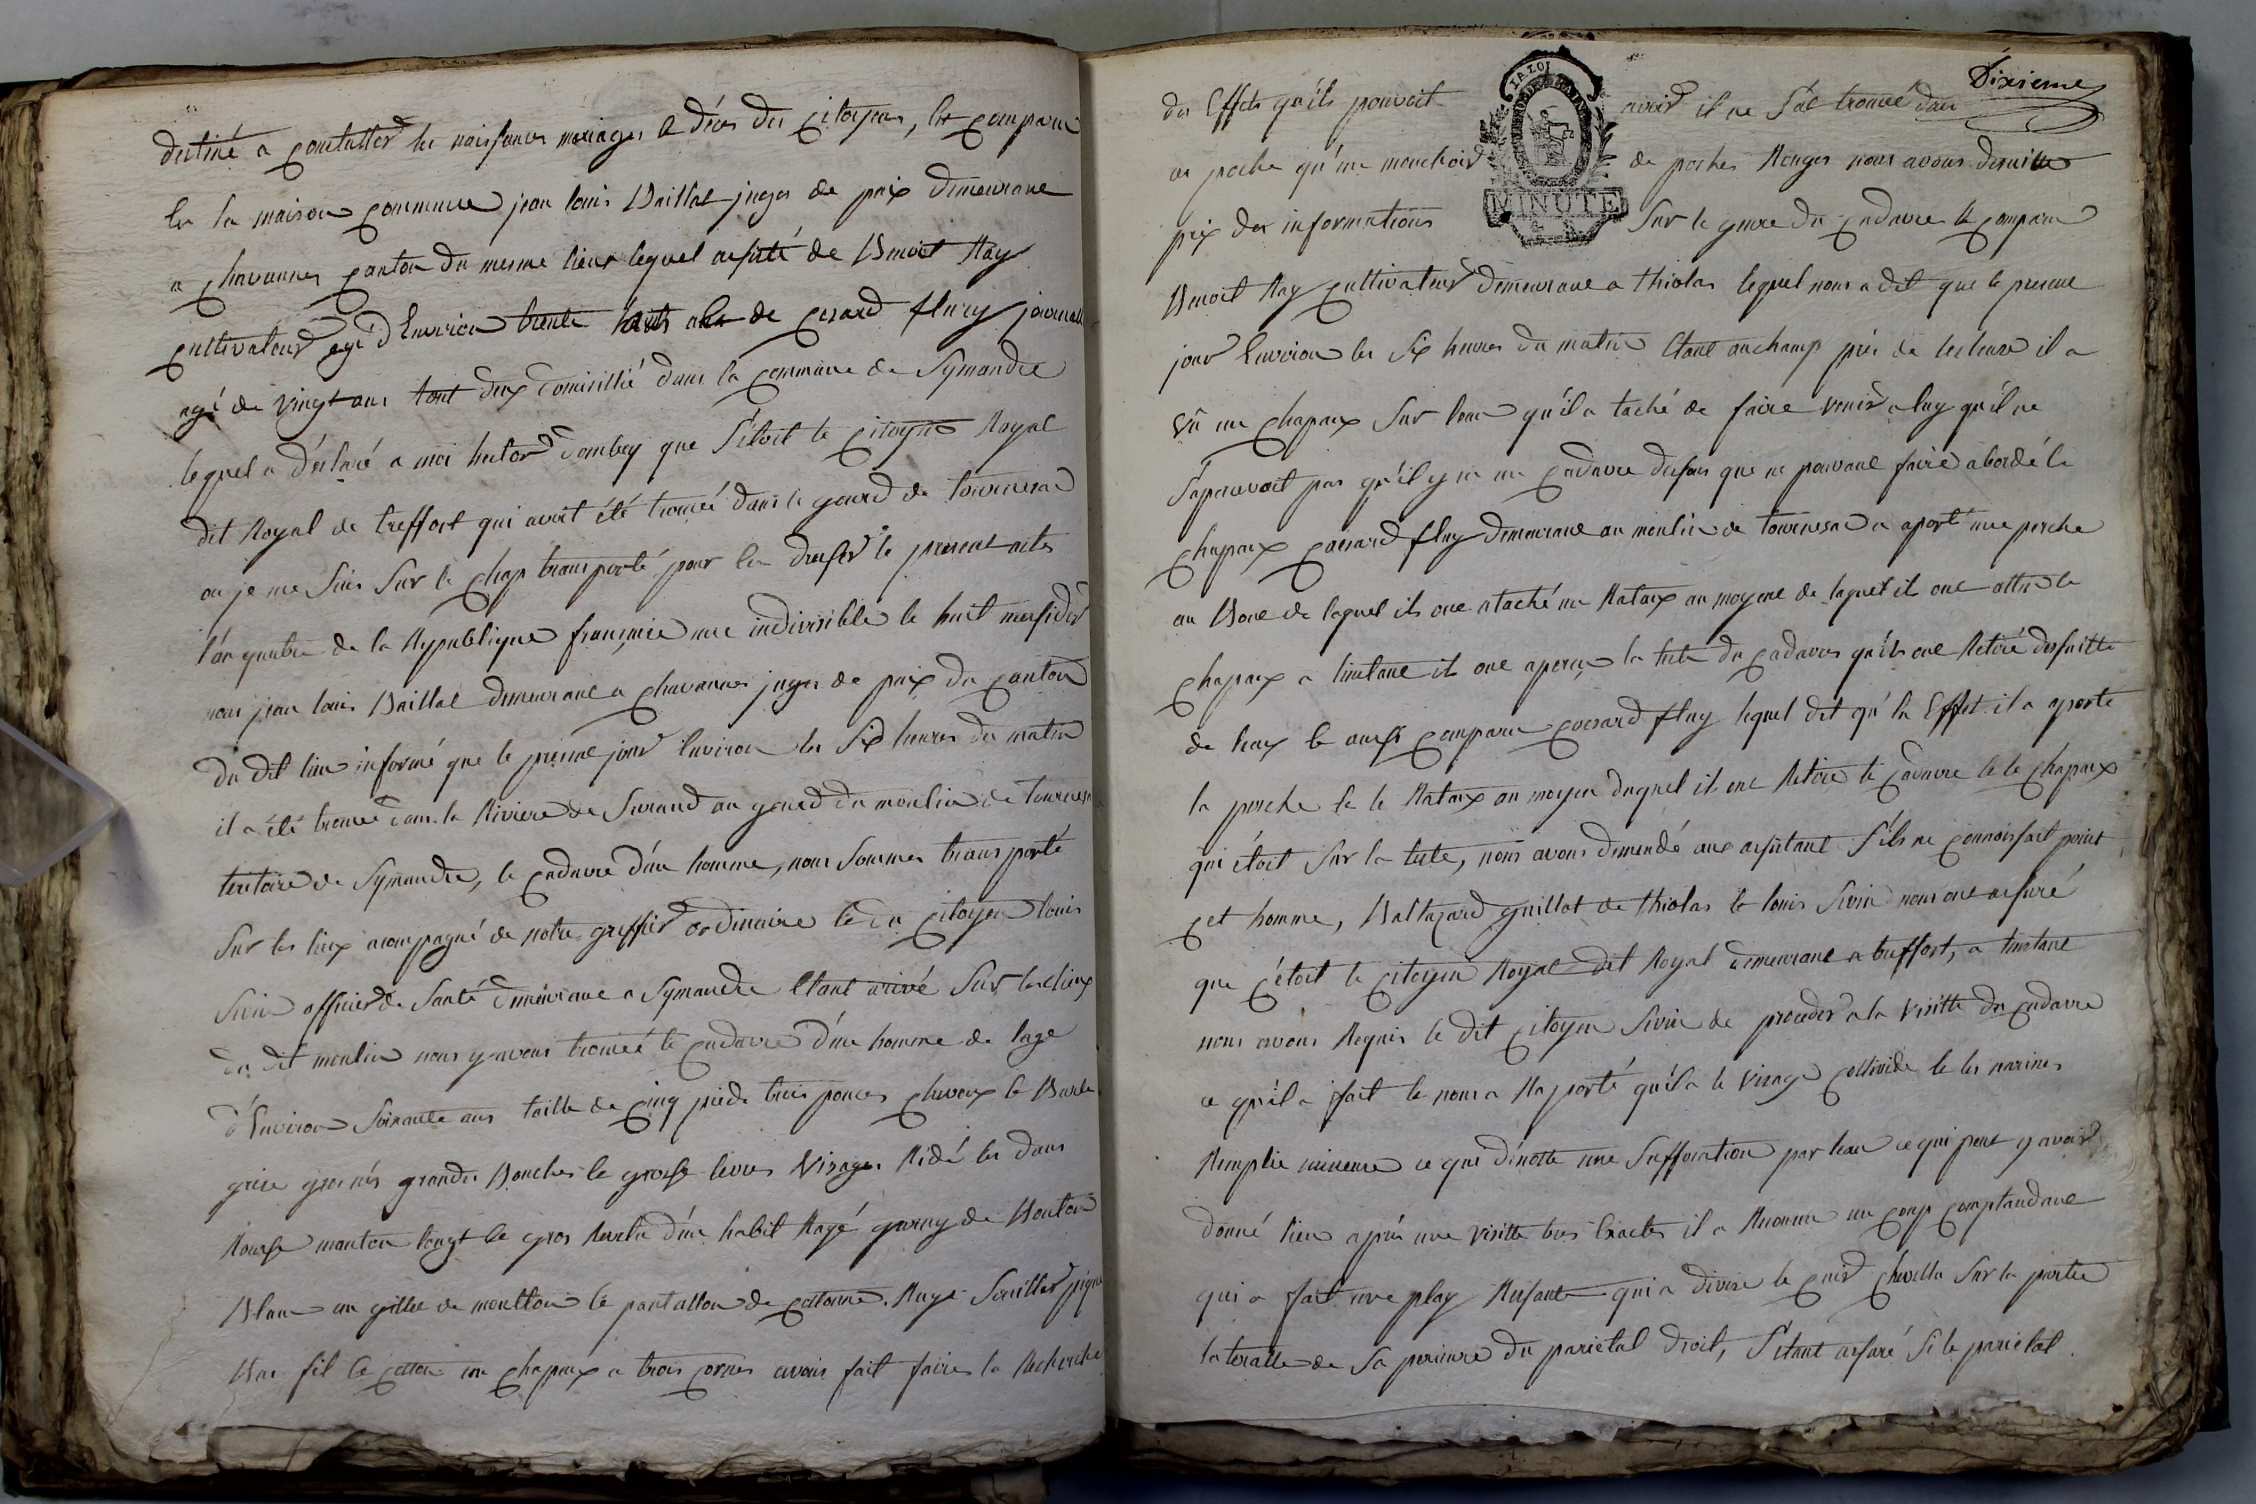 destiné a constatter les naissances mariages & décès des citoyens, est comparu
En la maison commune jean louis Baillat juges de paix demeurant
a chavannes canton du mesme lieux lequel assisté de Benoit Ray
cultivateur agé d'Environ trente huits ans de Cesard flury journallie
agé de vingt ans tout deux domicillié dans la commune de Symandre
lequel a déclaré a moi hector Dombey que s'étoit le citoyen Royal
dit Royal de treffort qui avoit été trouvé dans le gourd de tournesac
ou je me suis sur le chap transporté pour En dresser le present actes
l'an quatre de la Republique française une indivisible le huit messidor
nous jean louis Baillat demeurant a chavannes juges de paix du canton
du dit lieu informé que le présent jour Environ les six heures du matin
il a été trouvé dans la Riviere de Surand au gourd du moulin de tournesac
teritoire de Symandre, le cadavre d'un homme, nous sommes transporté
sur les lieux acompagné de notre greffier ordinaire et du citoyen louis
Sivin officier de Santé demeurant a Symandre Etant arivé sur les lieux
du dit moulin nous y avons trouvé le cadavre d'un homme de lage
d'Environ soixante ans taille de cinq pieds trois pouces cheveux et Barbe
grise gros nés grandes Bouches et grosse levres Visages Ridé les dans
Rousse manton longt et gros Revetu d'un habit Rayé garny de Bouton
Blanc un gillet de moulton et pantallon de cottonne Rayé souillier pique
Bas fil et cotton un chapeaux a trois cornes avoir fait faires la Recherche
Dixieme
des Effets qu'ils pouvoit avoir il ne s'est trouvé dans
ces poche qu'un mouchoir de poches Rouges nous avons Densuitte
prix des informations sur le genre du cadavre Et comparu
LA LOI
MINUTE
Benoit Ray cultivateur demeurant a thiolas lequel nous a dit que le present
jour Environ les six heures du matin Etant au champ près de lecluse il a
vu un chapeaux sur leau qu'il a taché de faire venir a luy qu'il ne
s'apercevoit pas qu'il y eu un cadavre dessous que ne pouvant faire abordé le
chapeaux Caesard flury demeurant au moulin de tournesac a aporté une perche
au Bout de laquel ils ont ataché un Rataux au moyent de laquel ils ont attiré le
chapeaux a linstant ils ont aperçu la tete du cadavre qu'ils ont Retiré densuitte
de leaux Et aussi comparu Caesard flury lequel dit qu'En Effet il a aporté
la perche Et le Rataux au moyen duquel ils ont Retiré le cadavre Et le chapeaux
qui étoit sur la tete, nous avons demendé aux assistant s'ils ne connoissoit point
cet homme, Baltazard guillot de thiolas Et louis Sivin nous ont assuré
que c'étoit le citoyen Royal dit Royal demeurant a treffort, a linstant
nous avons Requis le dit citoyen Sivin de proceder a la visitte du cadavre
ce qu'il a fait Et nous a Raporté qu'il a le visage et les narines
Remplie ce qui dénotte une suffocation par leau ce qui peut y avoir
donné lieu après une visitte tres Exactes il a Reconnu un coup
qui a fait une play qui a divisé le cuir chevellu sur la partie
lateralle de sa du parietal droit, s'étant assuré si le parietal